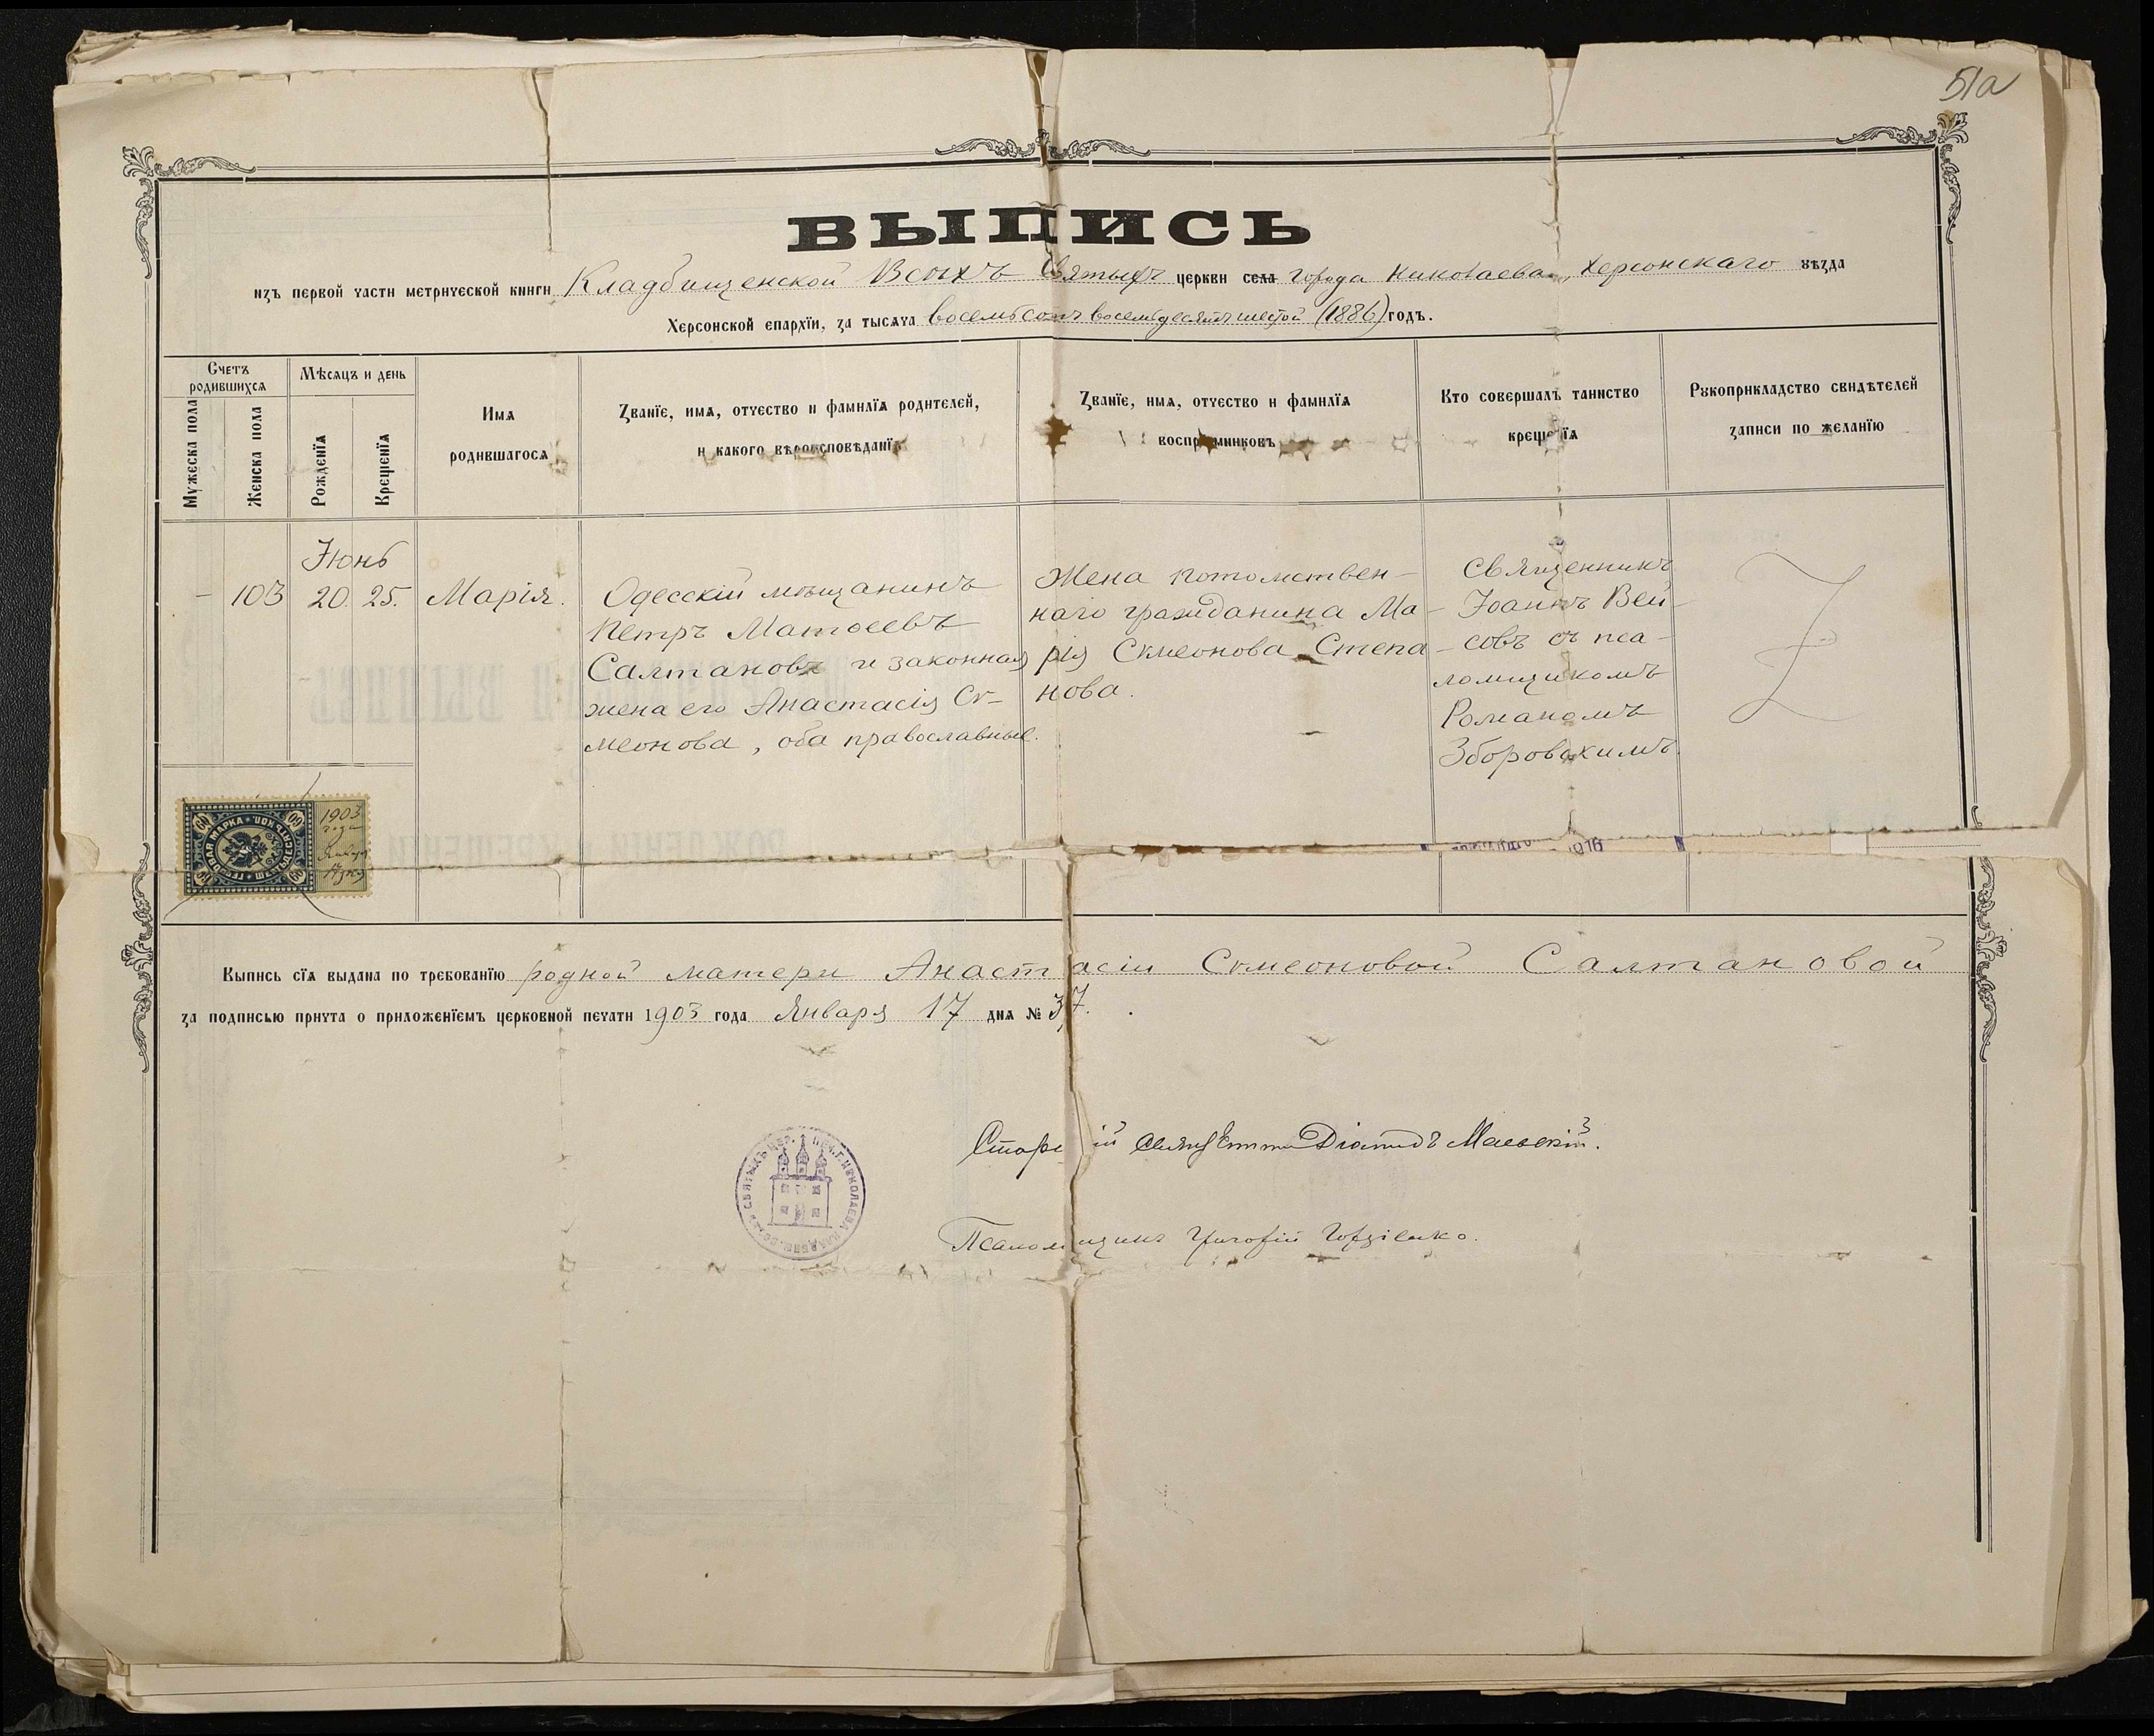 51а
ВЫПИСЬ
изъ первой части метрической книги Кладбищенской Всѣхъ Святыхъ церкви села города Николаева, Херсонскаго уѣзда
Херсонской епархїи, за тысяча восемьсотъ восемьдесятъ шестой (1886) годъ.
Счетъ родившихся
Мужеска пола
Женска пола
Мѣсяцъ и день
Рожденїя
Крещенїя
Имя
родившагося
Званїе, имя, отчество и фамилїя родителей,
и какого вѣроисповѣданїя
Званїе, имя, отчество и фамилїя
воспрїемниковъ
Кто совершалъ таинство
крещенїя
Рукоприкладство свидѣтелей
записи по желанїю
Іюнь
– 103 20. 25. Марія.
Одесскій мѣщанинъ
Петръ Матѳеевъ
Салтановъ и законная
жена его Анастасія Си-
меонова, оба православные.
Жена потомствен-
наго гражданина Ма-
рія Симеонова Степа-
нова.
Священникъ
Іоаннъ Вей-
совъ съ пса-
ломщикомъ
Романомъ
Зборовскимъ.
ГЕРБОВАЯ МАРКА ШЕСТЬДЕСЯТЪ КОП.
60
1903
года
Января
17 дня
1916
Выпись сїя выдана по требованїю родной матери Анастасіи Симеоновой Салтановой
за подписью причта о приложенїемъ церковной печати 1903 года Января 17 дня № 37.
Старшій Священникъ Діомидъ Маевскій.
Псаломщикъ Григорій Гордіенко.